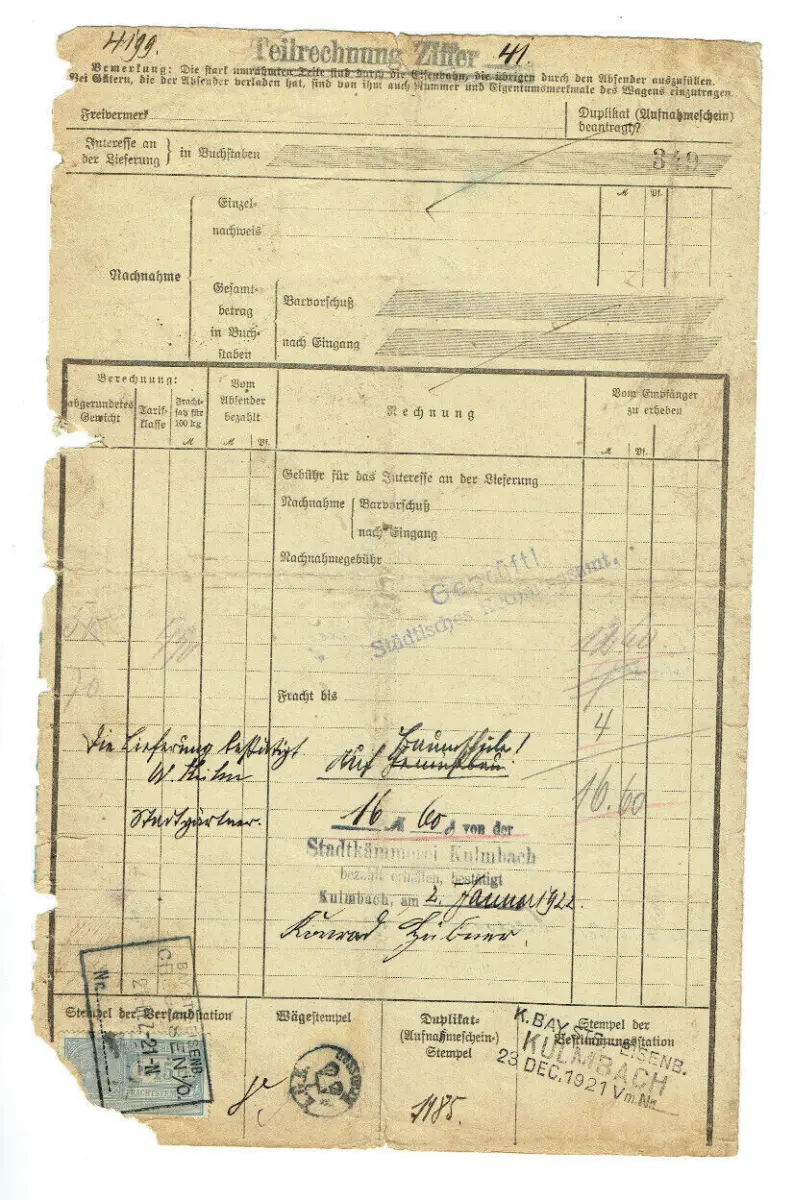 4199.
Teilrechnung Ziffer 41.
Bemerkung: Die stark umrahmten Teile sind durch die Eisenbahn, die übrigen durch den Absender auszufüllen.
Bei Gütern, die der Absender verladen hat, sind von ihm auch Nummer und Eigentumsmerkmale des Wagens einzutragen.
Freivermerk
Duplikat (Aufnahmeschein)
beantragt?
Interesse an
der Lieferung } in Buchstaben
349
M Pf.
Einzel-
nachweis
Nachnahme
Gesamt-
betrag
in Buch-
staben
Barvorschuß
nach Eingang
Berechnung:
abgerundetes
Gewicht
Tarif-
klasse
Fracht-
satz für
100 kg
M
Vom
Absender
bezahlt
M Pf.
Rechnung
Vom Empfänger
zu erheben
M Pf.
Gebühr für das Interesse an der Lieferung
Nachnahme { Barvorschuß
nach Eingang
Nachnahmegebühr
Geprüft!
Städtisches
12.60
70
Fracht bis
4
Die Lieferung bestätigt
Stadtgärtner.
auf Baumschule!
16.60
16 M 60 von der
Stadtkämmerei Kulmbach
bezahlt erhalten, bestätigt
Kulmbach, am 2. Januar 1922.
Konrad Hübner
Stempel der Versandstation
Nr.
FRACHTSTEMPEL
Wägestempel
Duplikat-
(Aufnahmeschein-)
Stempel
1185.
Stempel der
Bestimmungsstation
K. BAY. STS. EISENB.
KULMBACH
23 DEC. 1921 Vm. Nr.